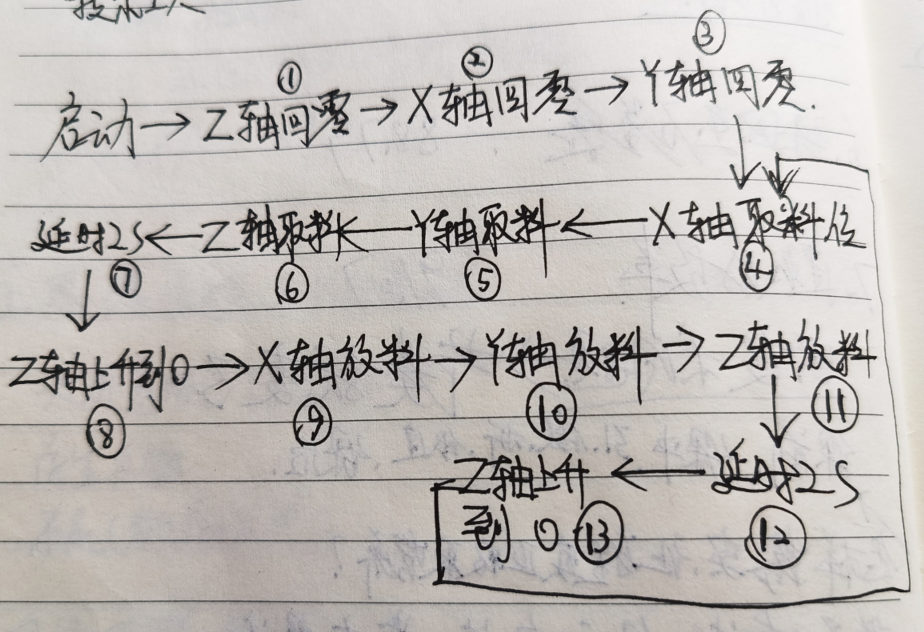 ① ② ③
启动→Z轴回零→X轴回零→Y轴回零.
延时2S←Z轴取料←Y轴取料←X轴取料位
⑦ ⑥ ⑤ ④
Z轴上升到0→X轴放料→Y轴放料→Z轴放料
⑧ ⑨ ⑩ ⑪
Z轴上升←延时2S
到0⑬ ⑫